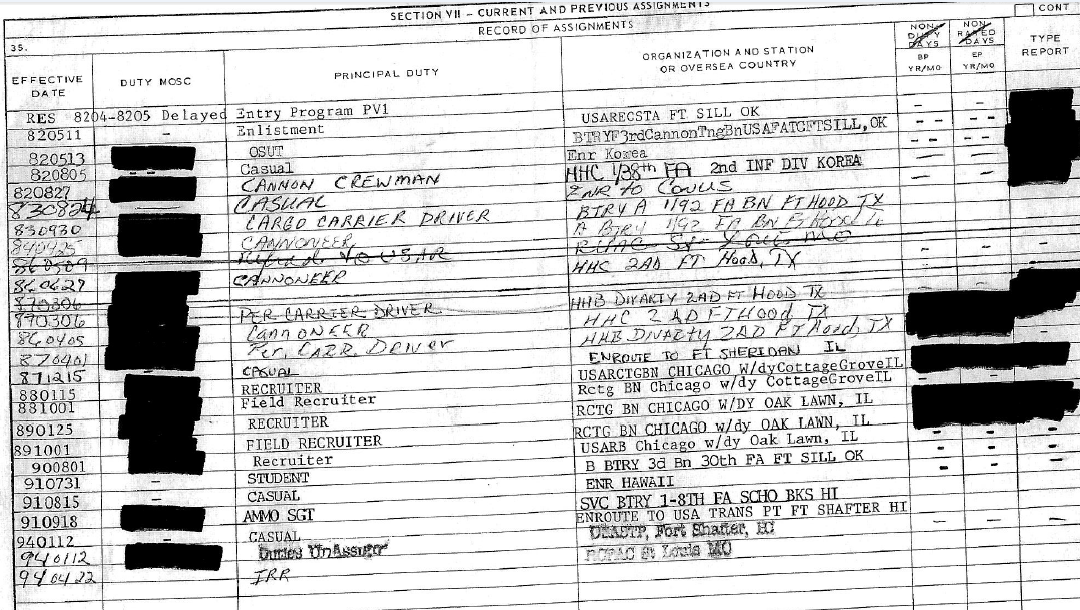 SECTION VII – CURRENT AND PREVIOUS ASSIGNMENTS
CONT
35.
RECORD OF ASSIGNMENTS
EFFECTIVE DATE DUTY MOSC PRINCIPAL DUTY ORGANIZATION AND STATION OR OVERSEA COUNTRY NON-DUTY DAYS BP YR/MO NON RATED DAYS EP YR/MO TYPE REPORT
RES 8204-8205 Delayed Entry Program PV1 USARECSTA FT SILL OK – –
820511 – Enlistment BTRYF3rdCannonTngBnUSAFATCFTSILL,OK
820513 OSUT Enr Korea
820805 – – Casual HHC 1/38th FA 2nd INF DIV KOREA
820827 CANNON CREWMAN ENR to CONUS
830824 CASUAL BTRY A 1/92 FA BN FT HOOD TX
830930 CARGO CARRIER DRIVER A BTRY 1/92 FA BN Ft Hood
840425 CANNONEER
860509 to USAR HHC 2AD FT Hood, TX
860627 CANNONEER
870306 HHB DIVARTY 2AD FT HOOD TX
890306 PER CARRIER DRIVER HHC 2 AD FT HOOD TX
860405 CANNONEER HHB Divarty 2AD FT Hood, TX
870401 Per. CARR. DRIVER ENROUTE TO FT SHERIDAN IL
871215 CASUAL USARCTGBN CHICAGO W/dyCottageGroveIL
880115 RECRUITER Rctg BN Chicago w/dy CottageGroveIL
881001 Field Recruiter RCTG BN CHICAGO W/DY OAK LAWN, IL
890125 RECRUITER RCTG BN CHICAGO w/dy OAK LAWN, IL
891001 FIELD RECRUITER USARB Chicago w/dy Oak Lawn, IL
900801 Recruiter B BTRY 3d Bn 30th FA FT SILL OK
910731 – STUDENT ENR HAWAII
910815 – CASUAL SVC BTRY 1-8TH FA SCHO BKS HI
910918 AMMO SGT ENROUTE TO USA TRANS PT FT SHAFTER HI
940112 – CASUAL Fort Shafter,
940112 Duties St Louis MO
940422 IRR